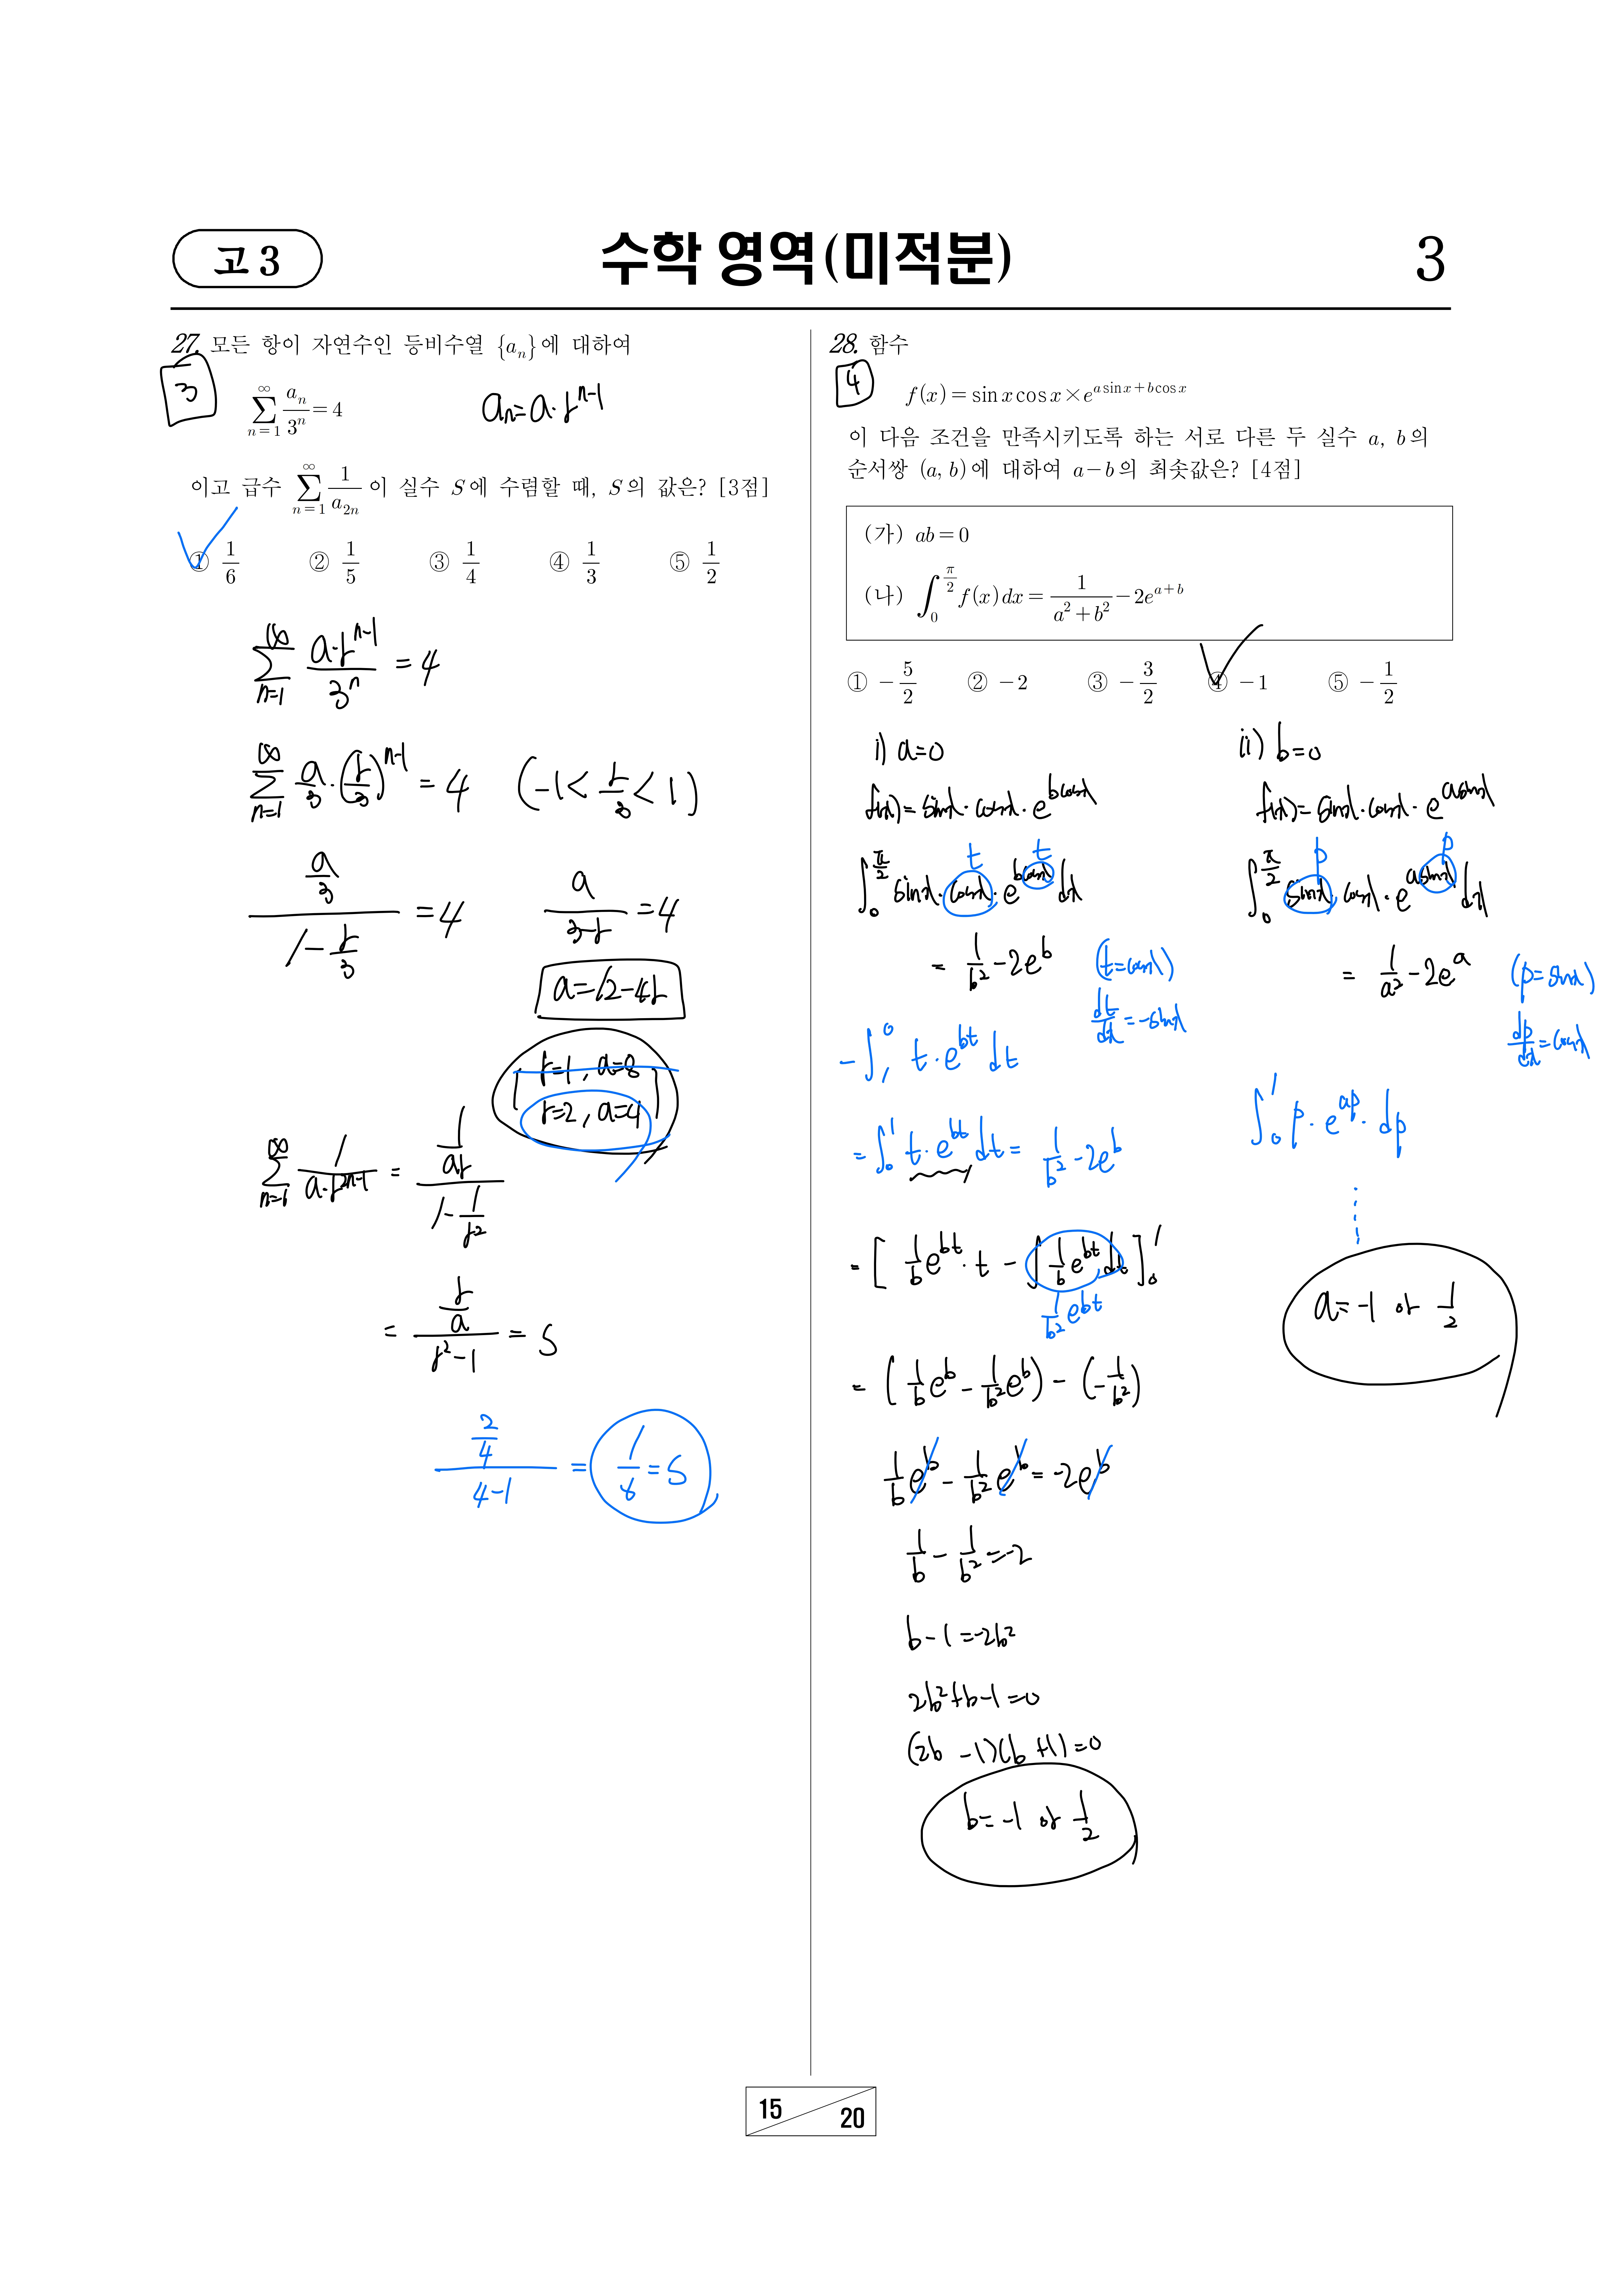 고 3
수학 영역(미적분)
3
27. 모든 항이 자연수인 등비수열 {aₙ}에 대하여
3
∑_{n=1}^{∞} aₙ/3ⁿ = 4
aₙ = a·r^{n-1}
이고 급수 ∑_{n=1}^{∞} 1/a_{2n} 이 실수 S에 수렴할 때, S의 값은? [3점]
① 1/6 ② 1/5 ③ 1/4 ④ 1/3 ⑤ 1/2
∑_{n=1}^{∞} a·r^{n-1}/3ⁿ = 4
∑_{n=1}^{∞} a/3·(r/3)^{n-1} = 4 (-1 < r/3 < 1)
(a/3)/(1-r/3) = 4
a/(3-r) = 4
a=12-4r
r=1, a=8
r=2, a=4
∑_{n=1}^{∞} 1/(a·r^{2n-1}) = (1/ar)/(1-1/r²)
= (r/a)/(r²-1) = S
(2/4)/(4-1) = 1/6 = S
28. 함수
4
f(x) = sin x cos x × e^{a sin x + b cos x}
이 다음 조건을 만족시키도록 하는 서로 다른 두 실수 a, b의
순서쌍 (a, b)에 대하여 a-b의 최솟값은? [4점]
(가) ab = 0
(나) ∫_{0}^{π/2} f(x)dx = 1/(a²+b²) - 2e^{a+b}
① -5/2 ② -2 ③ -3/2 ④ -1 ⑤ -1/2
i) a=0
f(x) = sinx·cosx·e^{bcosx}
t t
∫_{0}^{π/2} sinx·cosx·e^{bcosx} dx
= 1/b² - 2e^b
(t=cosx)
dt/dx = -sinx
-∫_{1}^{0} t·e^{bt} dt
= ∫_{0}^{1} t·e^{bt} dt = 1/b² - 2e^b
= [ 1/b e^{bt}·t - ∫ 1/b e^{bt} dt ]_{0}^{1}
1/b² e^{bt}
= (1/b e^b - 1/b² e^b) - (-1/b²)
1/b e^b - 1/b² e^b = -2e^b
1/b - 1/b² = -2
b-1 = -2b²
2b²+b-1=0
(2b -1)(b +1)=0
b= -1 or 1/2
ii) b=0
f(x) = sinx·cosx·e^{asinx}
p p
∫_{0}^{π/2} sinx·cosx·e^{asinx} dx
= 1/a² - 2e^a
(p=sinx)
dp/dx = cosx
∫_{0}^{1} p·e^{ap}·dp
a= -1 or 1/2
15
20